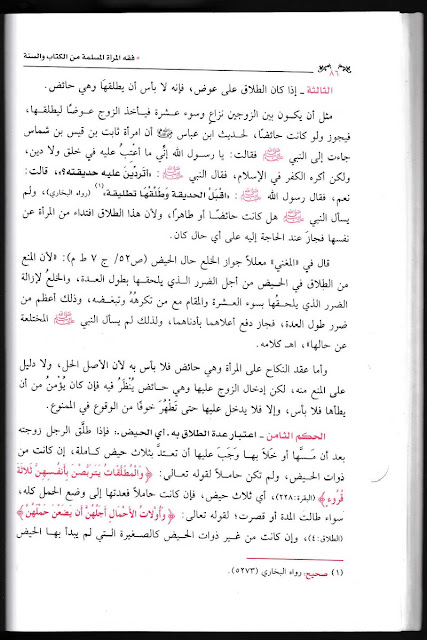 • فقه المرأة المسلمة من الكتاب والسنة
٨٦
الثالثة ـ إذا كان الطلاق على عوض، فإنه لا بأس أن يطلقها وهي حائض.
مثل أن يكون بين الزوجين نزاع وسوء عشرة فيأخذ الزوج عوضًا ليطلقها،
فيجوز ولو كانت حائضًا، لحديث ابن عباس رضي الله عنهما أن امرأة ثابت بن قيس بن شماس
جاءت إلى النبي ﷺ فقالت: يا رسول الله إنِّي ما أعتِبُ عليه في خلق ولا دين،
ولكن أكره الكفر في الإسلام، فقال النبي ﷺ: «أتردِّينَ عليه حديقته؟»، قالت:
نعم، فقال رسول الله ﷺ: «اقْبَلْ الحديقة وَطَلِّقْهَا تطليقة»(١) (رواه البخاري)، ولم
يسأل النبي ﷺ هل كانت حائضًا أو طاهرًا، ولأن هذا الطلاق افتداء من المرأة عن
نفسها فجاز عند الحاجة إليه على أي حال كان.
قال في «المغني» معللاً جواز الخلع حال الحيض (ص٥٢/ ج ٧ ط م): «لأن المنع
من الطلاق في الحيض من أجل الضرر الذي يلحقها بطول العدة، والخلعُ لإزالة
الضرر الذي يلحقُها بسوء العشرة والمقام مع من تكرهُهُ وتبغضه، وذلك أعظم من
ضرر طول العدة، فجاز دفع أعلاهما بأدناهما، ولذلك لم يسأل النبي ﷺ المختلعة
عن حالها»، اهـ كلامه.
وأما عقد النكاح على المرأة وهي حائض فلا بأس به لأن الأصل الحل، ولا دليل
على المنع منه، لكن إدخال الزوج عليها وهي حائض يُنْظَرُ فيه فإن كان يُؤْمَنُ من أن
يطأها فلا بأس، وإلا فلا يدخل عليها حتى تَطْهُرَ خوفًا من الوقوع في الممنوع.
الحكم الثامن ـ اعتبار عدة الطلاق به ـ أي الحيض ـ: فإذا طلَّق الرجل زوجته
بعد أن مَسَّها أو خَلاَ بها وجَبَ عليها أن تعتدَّ بثلاث حيض كاملة، إن كانت من
ذوات الحيض، ولم تكن حاملاً لقوله تعالى: ﴿ وَالْمُطَلَّقَاتُ يَتَرَبَّصْنَ بِأَنفُسِهِنَّ ثَلاثَةَ
قُرُوءٍ ﴾ (البقرة:٢٢٨)، أي ثلاث حيض، فإن كانت حاملاً فعدتها إلى وضع الحمل كله،
سواء طالت المدة أو قصرت؛ لقوله تعالى: ﴿ وَأُوْلاتُ الأَحْمَالِ أَجَلُهُنَّ أَن يَضَعْنَ حَمْلَهُنَّ ﴾
(الطلاق:٤)، وإن كانت من غير ذوات الحيض كالصغيرة التي لم يبدأ بها الحيض
(١) صحيح: رواه البخاري (٥٢٧٣).